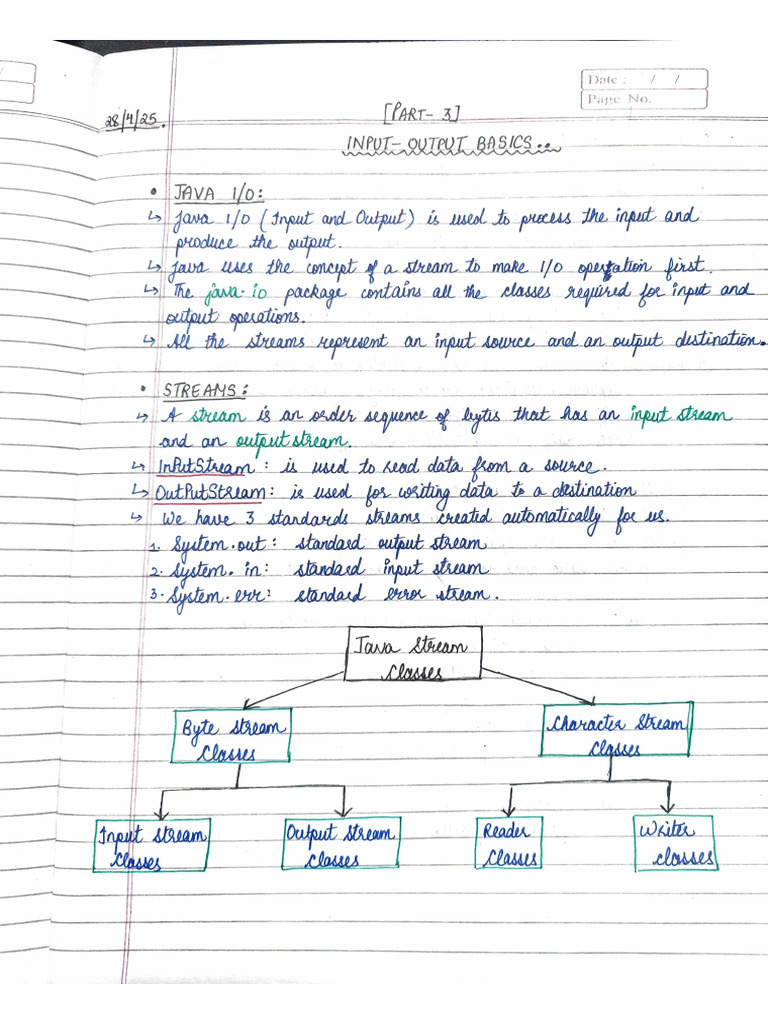 Date : / /
Page No.
28/4/25.
[PART- 3]
INPUT-OUTPUT BASICS..
• JAVA I/O:
↳ Java I/O (Input and Output) is used to process the input and
produce the output.
↳ Java uses the concept of a stream to make I/O operation first.
↳ The java.io package contains all the classes required for input and
output operations.
↳ All the streams represent an input source and an output destination.
• STREAMS:
↳ A stream is an order sequence of bytes that has an input stream
and an output stream.
↳ InPutStream: is used to read data from a source.
↳ OutPutStream: is used for writing data to a destination
↳ We have 3 standards streams created automatically for us.
1. System.out: standard output stream
2. System.in: standard input stream
3. System.err: standard error stream.
Java Stream
Classes
Byte Stream
Classes
Character Stream
Classes
Input Stream
Classes
Output Stream
Classes
Reader
Classes
Writer
Classes